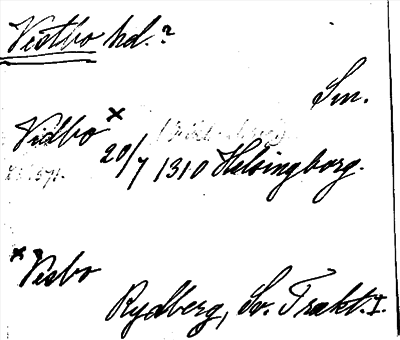 Vestbo hd.?
Sm.
Vidbo x
20/7 1310 Helsingborg.
x Visbo
Rydberg, Sv. Trakt. I.